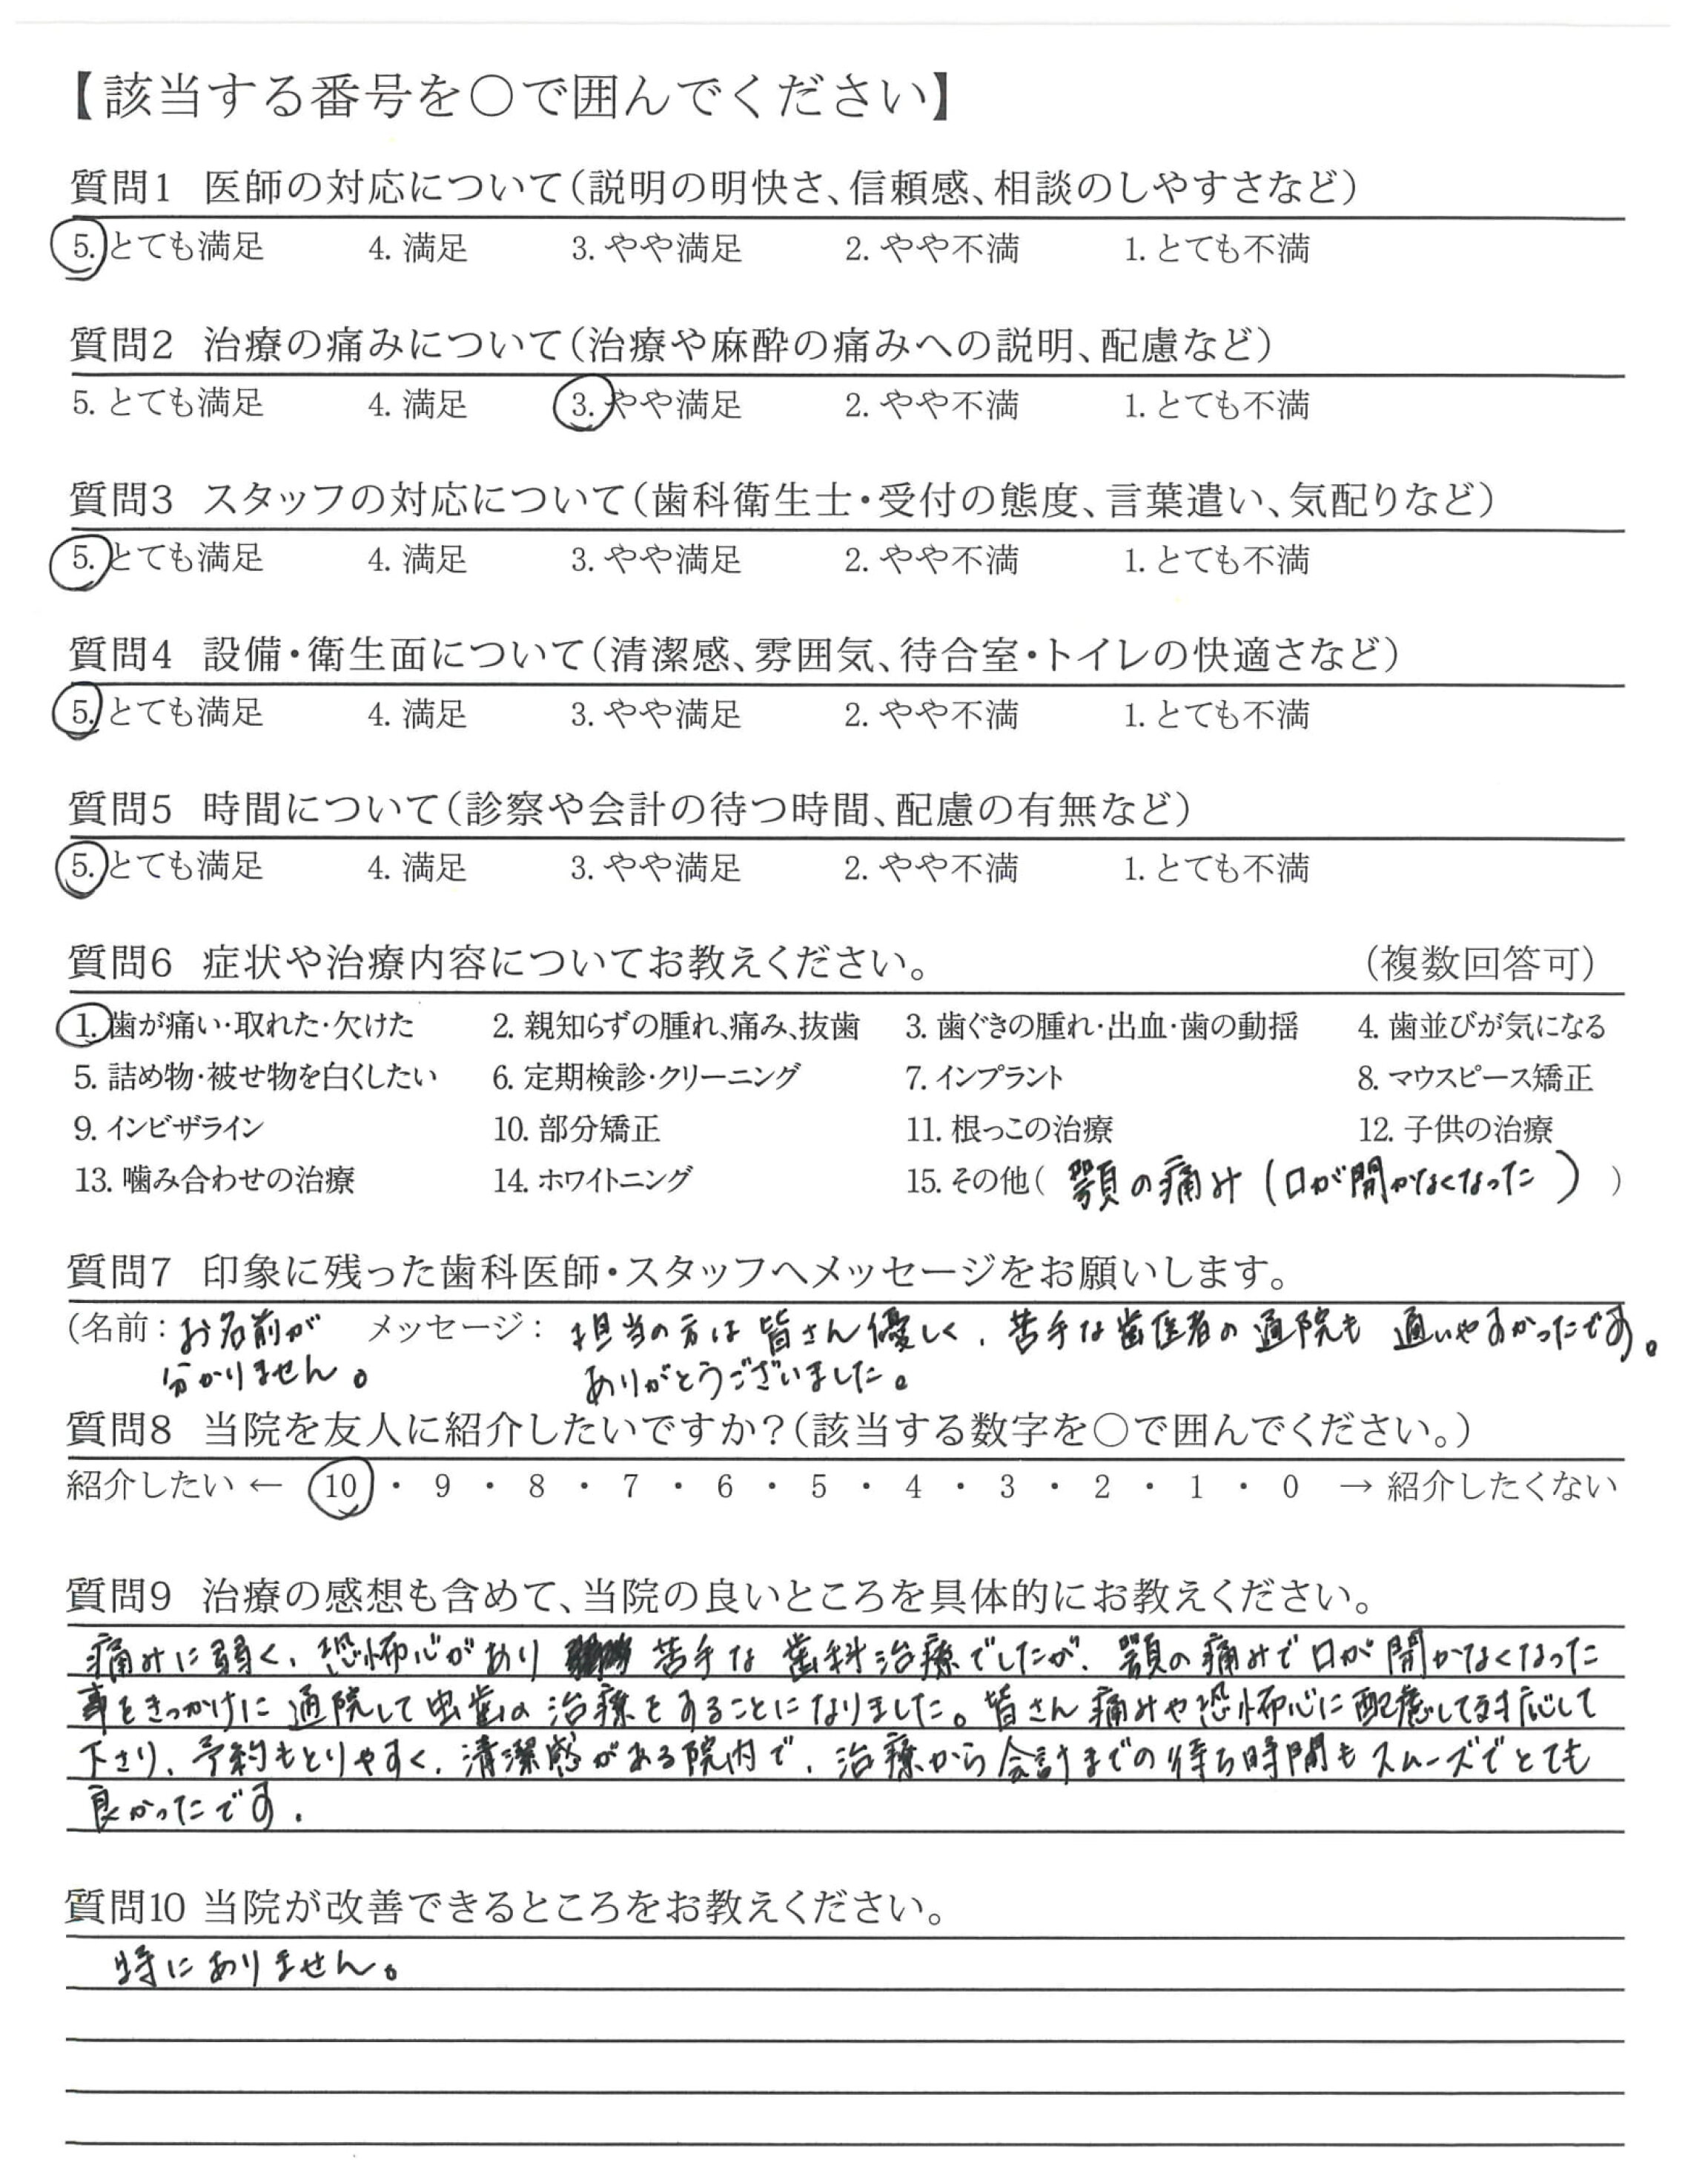 【該当する番号を○で囲んでください】
質問1 医師の対応について(説明の明快さ、信頼感、相談のしやすさなど)
5. とても満足 4. 満足 3. やや満足 2. やや不満 1. とても不満
質問2 治療の痛みについて(治療や麻酔の痛みへの説明、配慮など)
5. とても満足 4. 満足 3. やや満足 2. やや不満 1. とても不満
質問3 スタッフの対応について(歯科衛生士・受付の態度、言葉遣い、気配りなど)
5. とても満足 4. 満足 3. やや満足 2. やや不満 1. とても不満
質問4 設備・衛生面について(清潔感、雰囲気、待合室・トイレの快適さなど)
5. とても満足 4. 満足 3. やや満足 2. やや不満 1. とても不満
質問5 時間について(診察や会計の待つ時間、配慮の有無など)
5. とても満足 4. 満足 3. やや満足 2. やや不満 1. とても不満
質問6 症状や治療内容についてお教えください。 (複数回答可)
1. 歯が痛い・取れた・欠けた 2. 親知らずの腫れ、痛み、抜歯 3. 歯ぐきの腫れ・出血・歯の動揺 4. 歯並びが気になる
5. 詰め物・被せ物を白くしたい 6. 定期検診・クリーニング 7. インプラント 8. マウスピース矯正
9. インビザライン 10. 部分矯正 11. 根っこの治療 12. 子供の治療
13. 噛み合わせの治療 14. ホワイトニング 15. その他( 顎の痛み(口が開かなくなった) )
質問7 印象に残った歯科医師・スタッフへメッセージをお願いします。
(名前: お名前が メッセージ: 担当の方は皆さん優しく、苦手な歯医者の通院も通いやすかったです。
分かりません。 ありがとうございました。
質問8 当院を友人に紹介したいですか?(該当する数字を○で囲んでください。)
紹介したい ← 10 ・ 9 ・ 8 ・ 7 ・ 6 ・ 5 ・ 4 ・ 3 ・ 2 ・ 1 ・ 0 → 紹介したくない
質問9 治療の感想も含めて、当院の良いところを具体的にお教えください。
痛みに弱く、恐怖心があり 苦手な歯科治療でしたが、顎の痛みで口が開かなくなった
事をきっかけに通院して虫歯の治療をすることになりました。皆さん痛みや恐怖心に配慮して対応して
下さり、予約もとりやすく、清潔感がある院内で、治療から会計までの待ち時間もスムーズでとても
良かったです。
質問10 当院が改善できるところをお教えください。
特にありません。